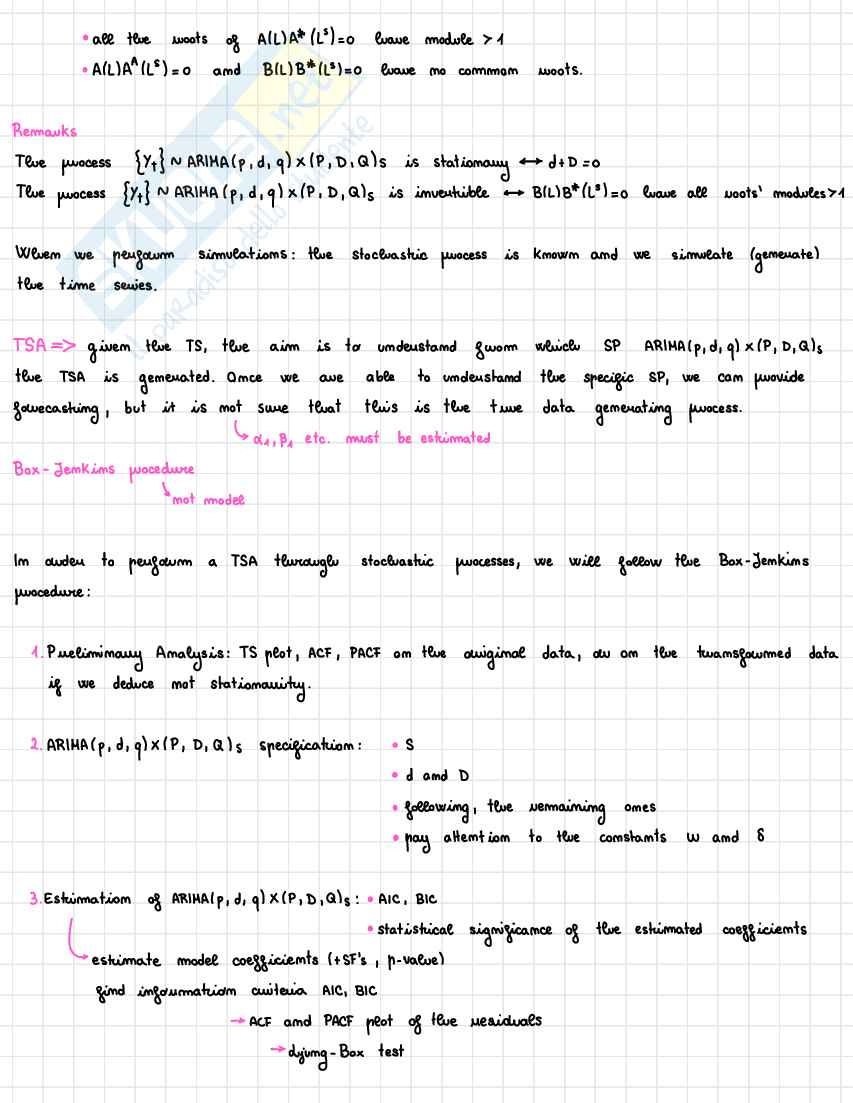 • all the roots of A(L)A*(Lˢ)=0 have module >1
• A(L)Aᴬ(Lˢ)=0 and B(L)B*(Lˢ)=0 have no common roots.
Remarks
The process {Yₜ} ~ ARIMA(p,d,q)×(P,D,Q)ₛ is stationary ↔ d+D=0
The process {Yₜ} ~ ARIMA(p,d,q)×(P,D,Q)ₛ is invertible ↔ B(L)B*(Lˢ)=0 have all roots' modules>1
When we perform simulations: the stochastic process is known and we simulate (generate)
the time series.
TSA => given the TS, the aim is to understand from which SP ARIMA(p,d,q)×(P,D,Q)ₛ
the TSA is generated. Once we are able to understand the specific SP, we can provide
forecasting, but it is not sure that this is the true data generating process.
↳ α₁, β₁ etc. must be estimated
Box-Jenkins procedure
↘ not model
In order to perform a TSA through stochastic processes, we will follow the Box-Jenkins
procedure:
1. Preliminary Analysis: TS plot, ACF, PACF on the original data, or on the transformed data
if we deduce not stationarity.
2. ARIMA(p,d,q)×(P,D,Q)ₛ specification: • S
• d and D
• following, the remaining ones
• pay attention to the constants ω and δ
3. Estimation of ARIMA(p,d,q)×(P,D,Q)ₛ: • AIC, BIC
• statistical significance of the estimated coefficients
↳ estimate model coefficients (+SF's, p-value)
find information criteria AIC, BIC
→ ACF and PACF plot of the residuals
→ djung-Box test
SKUOLA.net
il paradiso dello studente